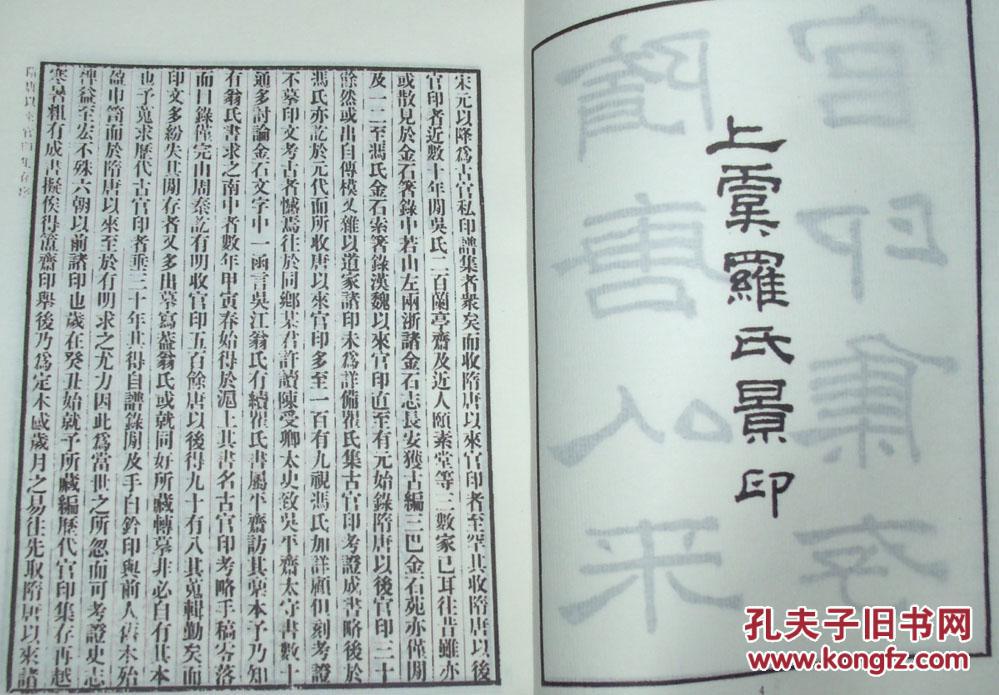 官印集存
隋唐以来
上虞羅氏景印
宋元以降爲古官私印譜集者衆矣而收隋唐以來官印者至罕其收隋唐以後
官印者近數十年閒吳氏二百蘭亭齋及近人頤素堂等三數家已耳往昔雖亦
或散見於金石箸錄中若山左兩浙諸金石志長安獲古編三巴金石苑亦僅閒
及一二至馮氏金石索箸錄漢魏以來官印直至有元始錄隋唐以後官印三十
餘然或出自傳模又雜以道家諸印未爲詳備瞿氏集古官印考證成書略後於
馮氏亦訖於元代而所收唐以來官印多至一百有九視馮氏加詳顧但刻考證
不摹印文考古者憾焉往於同鄉某君許讀陳受卿太史致吳平齋太守書數十
通多討論金石文字中一函言吳江翁氏有續瞿氏書屬平齋訪其槀本予乃知
有翁氏書求之南中者數年甲寅春始得於滬上其書名古官印考略手稿零落
而目錄僅完由周秦訖有明收官印五百餘唐以後得九十有八其蒐輯勤矣而
印文多紛失其閒存者又多出摹寫蓋翁氏或就同好所藏轉摹非必自有其本
也予蒐求歷代古官印者垂三十年其得自譜錄閒及手自鈐印與前人舊本殆
盈巾笥而於隋唐以來至於有明求之尤力因此爲當世之所忽而可考證史志
裨益至宏不殊六朝以前諸印也歲在癸丑始就予所藏編歷代官印集存再越
寒暑粗有成書擬俟得簠齋印舉後乃爲定本感歲月之易往先取隋唐以來諸
隋唐以來官印集存序
孔夫子旧书网
www.kongfz.com